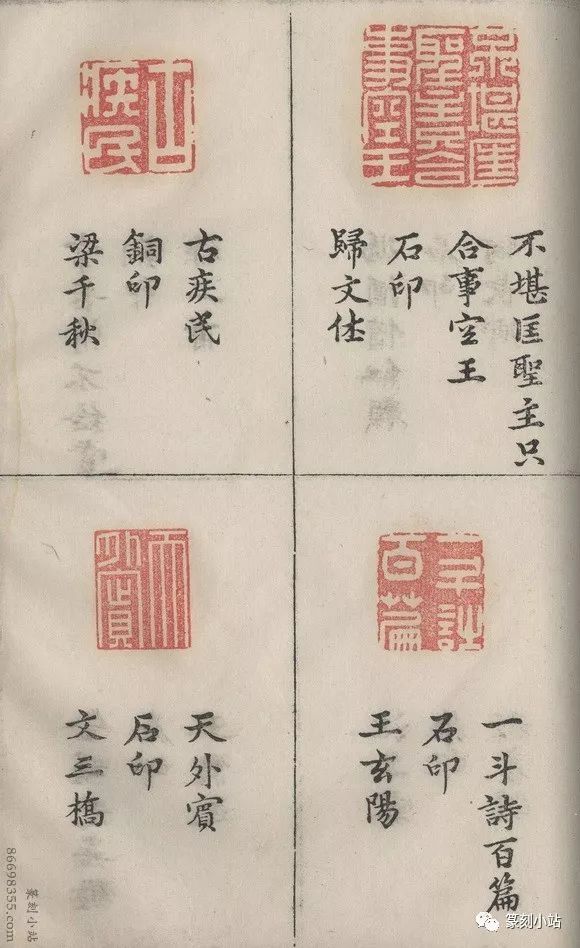 不堪匡聖主只
合事空王
石印
歸文休
古疾民
銅印
梁千秋
一斗詩百篇
石印
王玄陽
天外賓
石印
文三橋
篆刻小站
86698355.com
篆刻小站